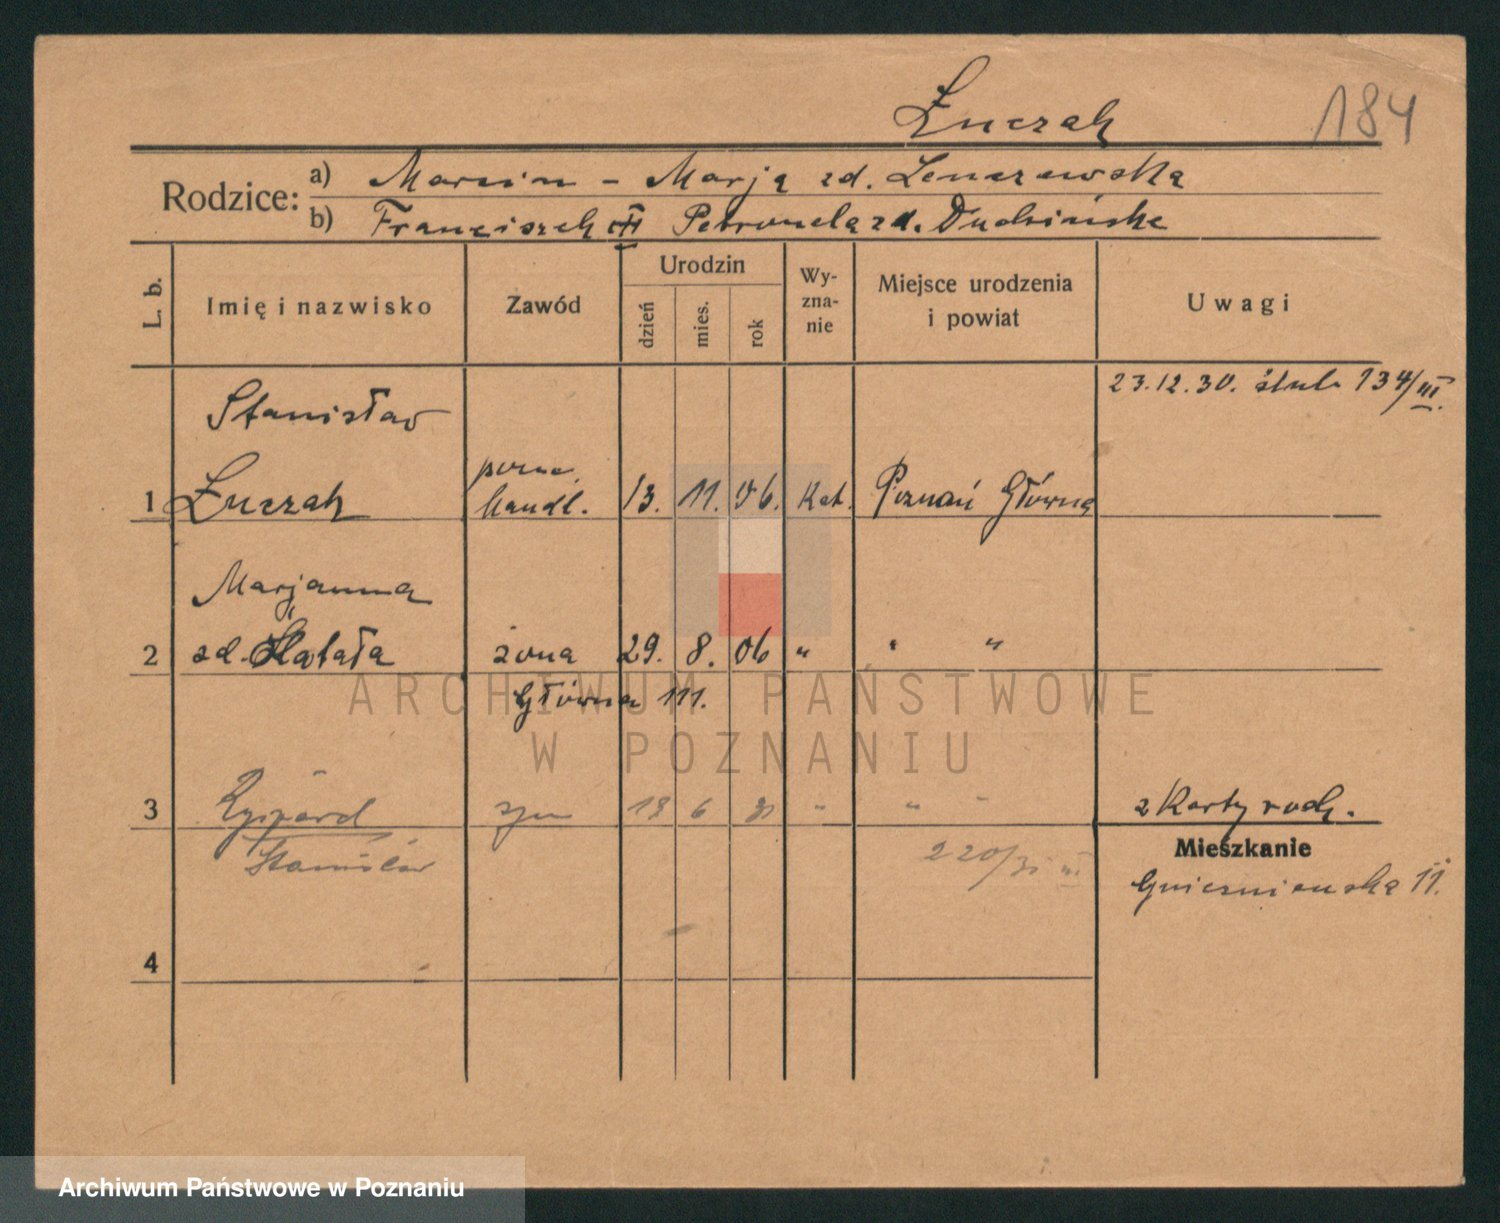 Łuczak
184
Rodzice:
a) Marcin - Marja zd. Lenczewska
b) Franciszek Petronela zd. Dudzińska
L. b.
Imię i nazwisko
Zawód
Urodzin
dzień
mies.
rok
Wy-
zna-
nie
Miejsce urodzenia
i powiat
Uwagi
23.12.30. ślub 134/III.
Stanisław
1 Łuczak pom. handl. 13. 11. 06. Kat. Poznań Główna
Marjanna
2 zd. Hątała żona 29. 8. 06 " " "
Główna 111.
3 Ryszard syn 13 6 31 " " "
z Karty rodz.
Stanisław
220/31 III
Mieszkanie
Gnieźnieńska 11.
4
ARCHIWUM PAŃSTWOWE
W POZNANIU
Archiwum Państwowe w Poznaniu